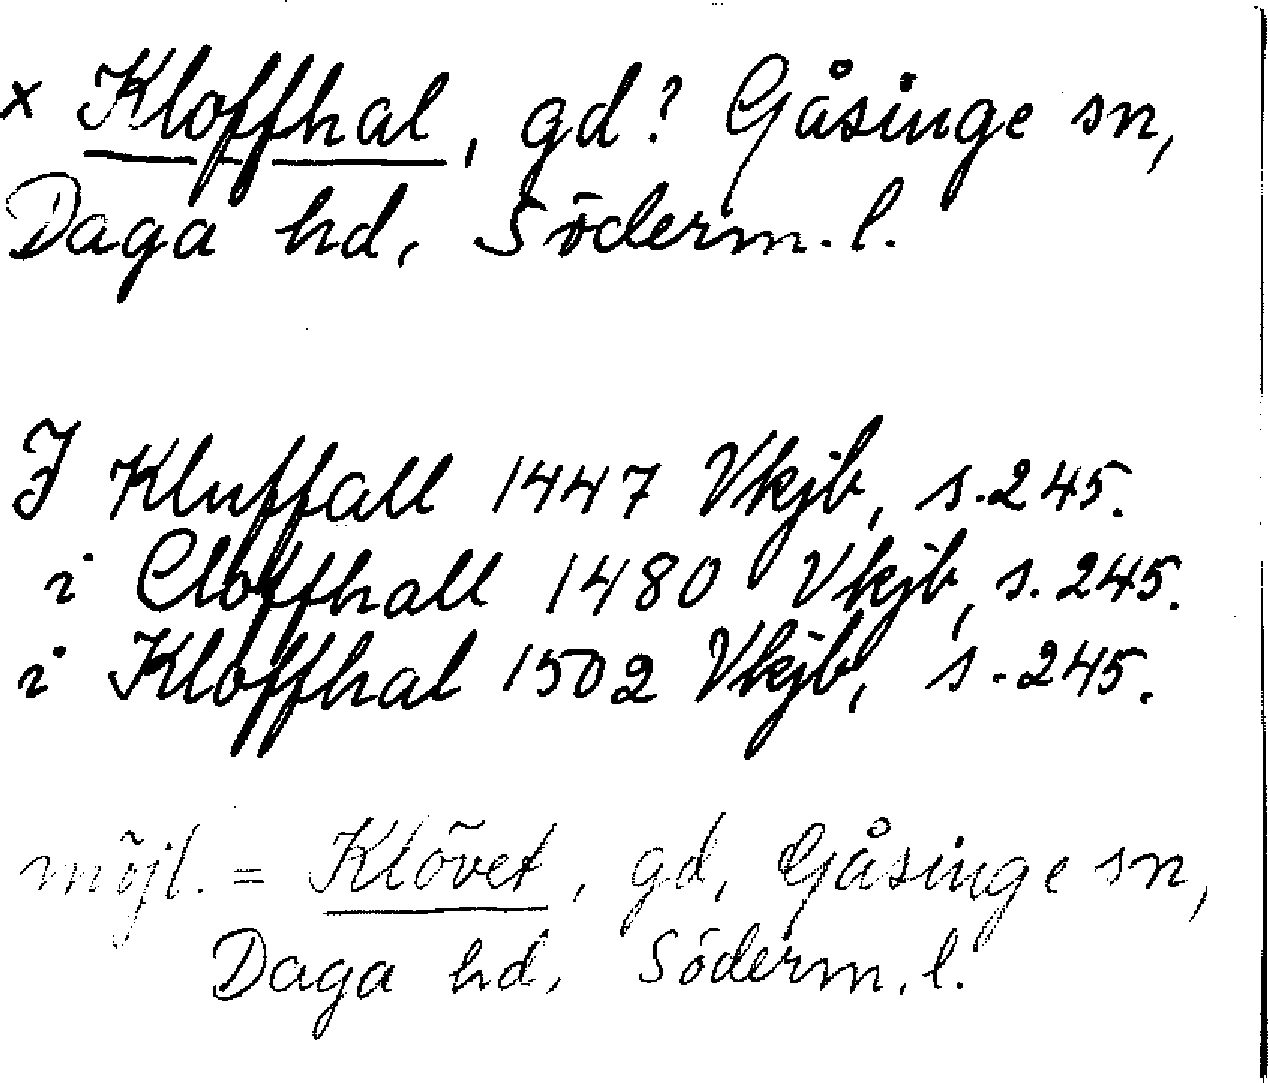 x Kloffhal, gd? Gåsinge sn,
Daga hd, Söderm. l.
I Kluffall 1447 Vkjb, s. 245.
i Cloffhall 1480 Vkjb, s. 245.
i Kloffhal 1502 Vkjb, s. 245.
möjl. = Klövet, gd, Gåsinge sn,
Daga hd, Söderm. l.